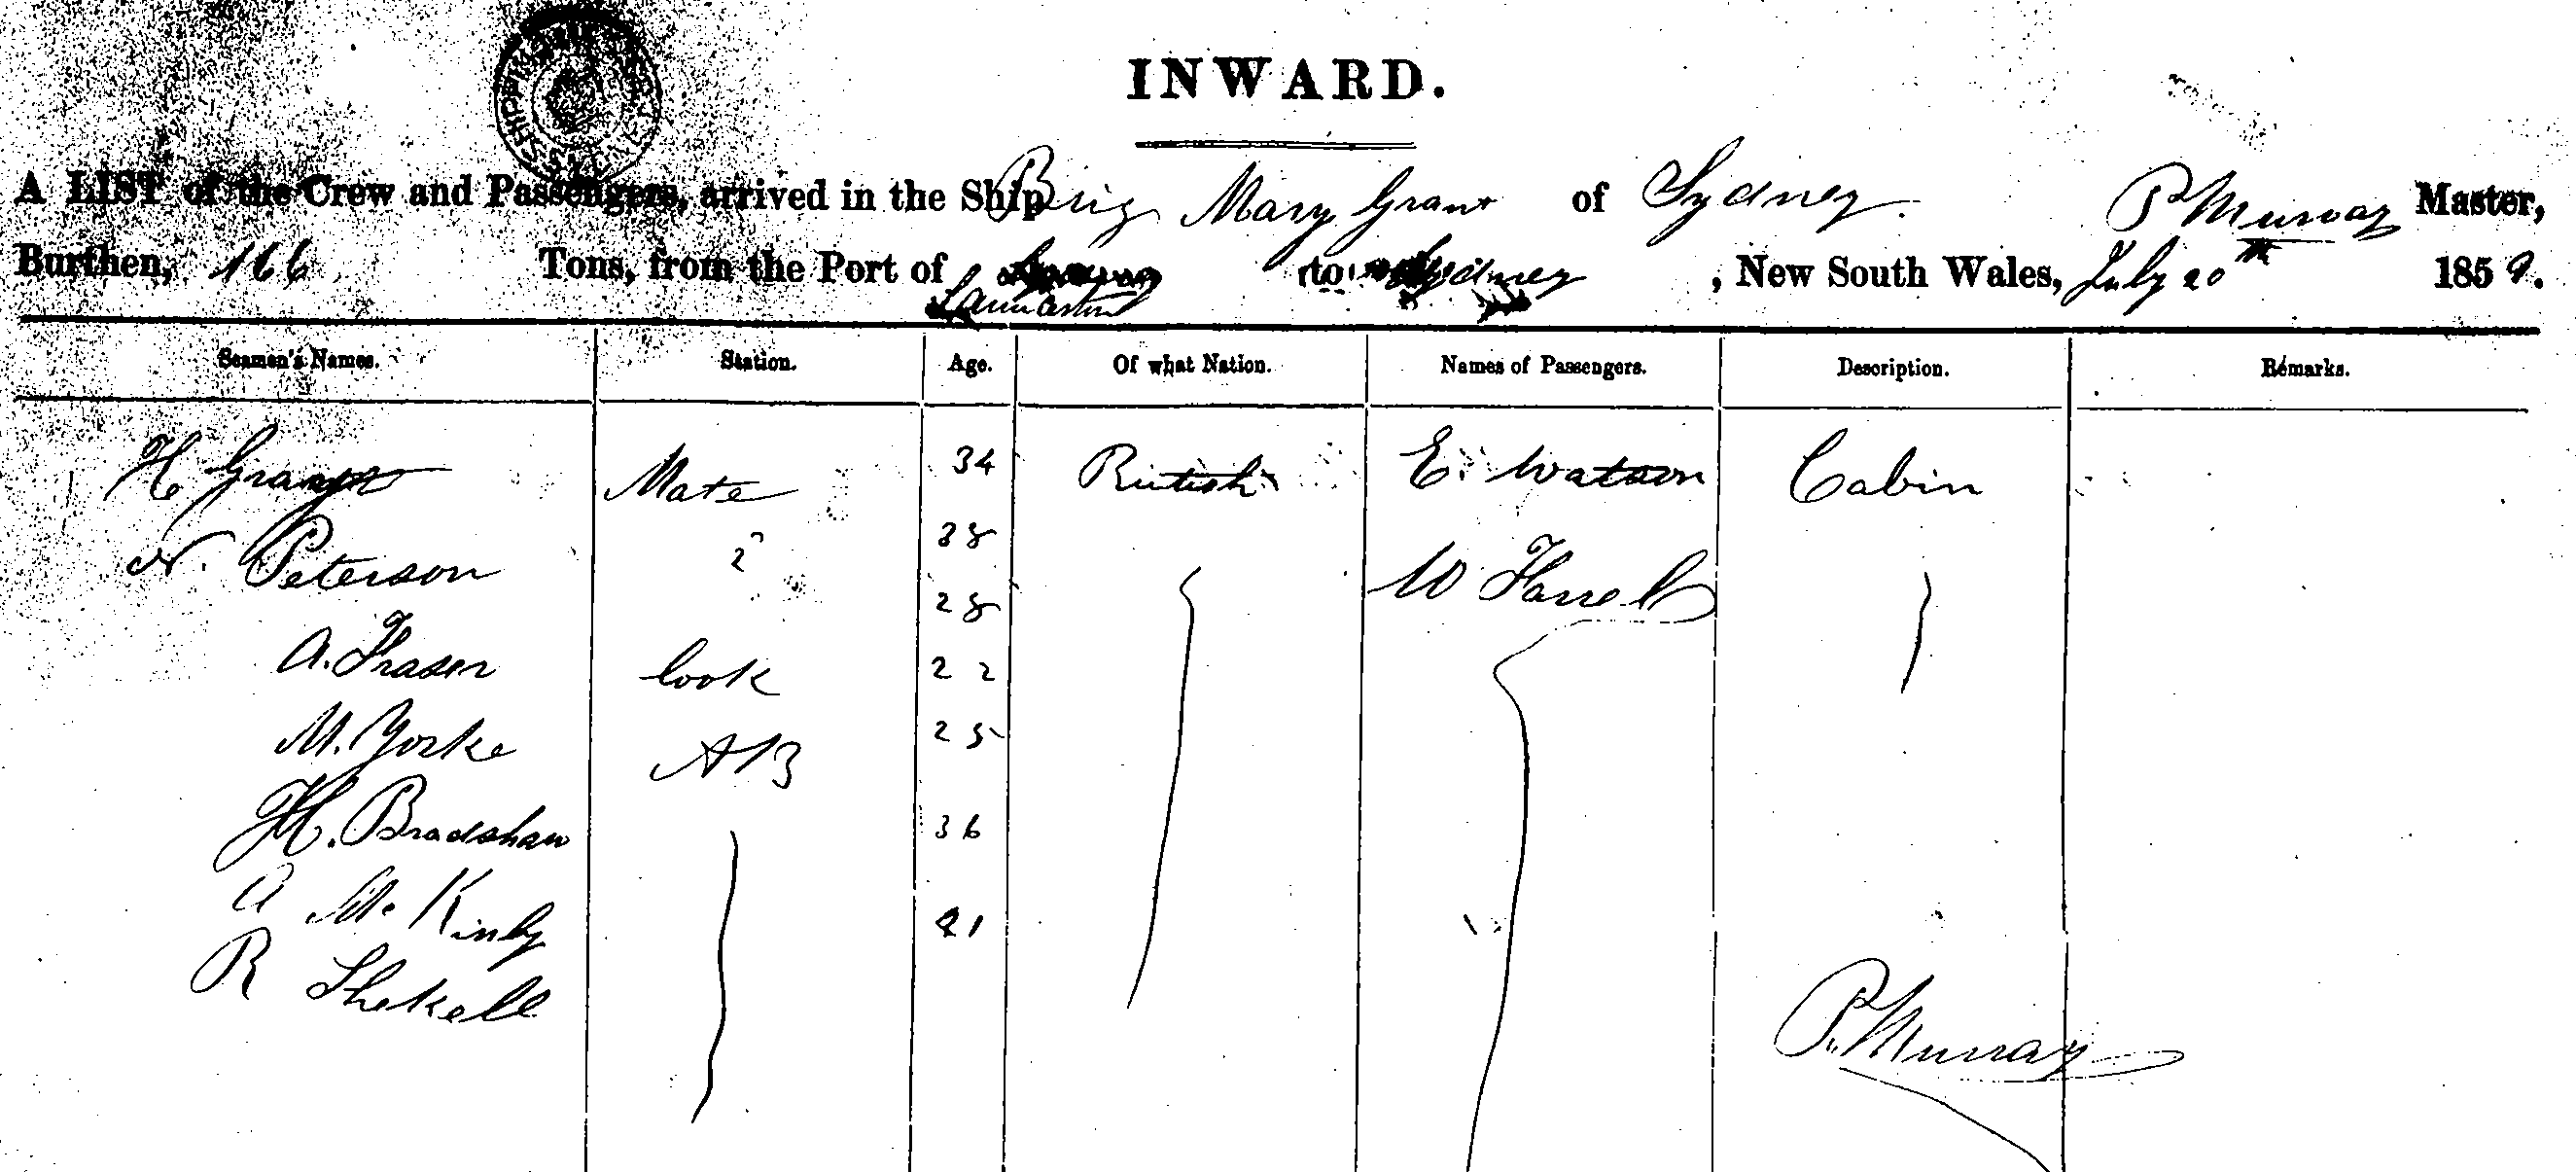 INWARD.
A LIST of the Crew and Passengers, arrived in the Ship Brig Mary Grant of Sydney. P Murray Master,
Burthen, 166 Tons, from the Port of Launceston to Sydney, New South Wales, July 20th 1859.
Seamen's Names. Station. Age. Of what Nation. Names of Passengers. Description. Remarks.
H Mate 34 British E. Watson Cabin
N. Peterson 2 38 W Farrell
A. Fraser Cook 28
M. Yorke AB 22
H. Bradshaw 25
A Mc Kinly 36
R Shekell 21
P. Murray